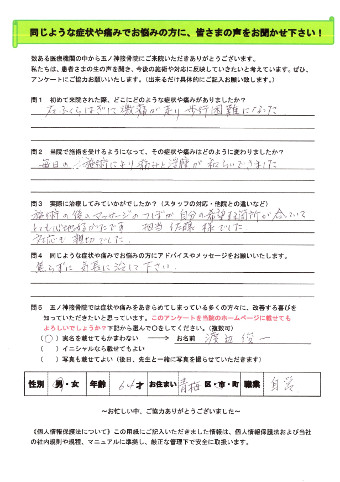 同じような症状や痛みでお悩みの方に、皆さまの声をお聞かせ下さい！
数ある医療機関の中から五ノ神接骨院にご来院いただきありがとうございます。
私たちは、患者さまの生の声を聞き、今後の施術や対応に反映していきたいと考えています。ぜひ、
アンケートにご協力お願いいたします。（出来るだけ具体的にご記入お願い致します。）
問1 初めて来院された際、どこにどのような症状や痛みがありましたか？
右ふくらはぎに激痛が走り歩行困難になった
問2 当院で施術を受けるようになって、その症状や痛みはどのように変わりましたか？
毎日の施術により痛みと
問3 実際に治療してみていかがでしたか？（スタッフの対応・他院との違いなど）
施術の後のマッサージのつぼが自分の希望する箇所が
とても心地よかったです 担当佐藤様でした
対応も親切でした。
問4 同じような症状や痛みでお悩みの方にアドバイスやメッセージをお願いいたします。
焦らずに気長に治して下さい。
問5 五ノ神接骨院では症状や痛みをあきらめてしまっている多くの方々に、改善する喜びを
知っていただきたいと思っています。このアンケートを当院のホームページに載せても
よろしいでしょうか？下記から選んで○をしてください。（複数可）
（○）実名を載せてもかまわない → お名前 渡辺俊一
（ ）イニシャルなら載せてもよい
（ ）写真も載せてよい（後日、先生と一緒に写真を撮らせていただきます）
性別 男・女 年齢 64才 お住まい 青梅 区・市・町 職業 自営
～お忙しい中、ご協力ありがとうございました～
《個人情報保護法について》この用紙にご記入いただきました情報は、個人情報保護法および当社
の社内規則や規程、マニュアルに準拠し、厳正な管理下で安全に取扱います。